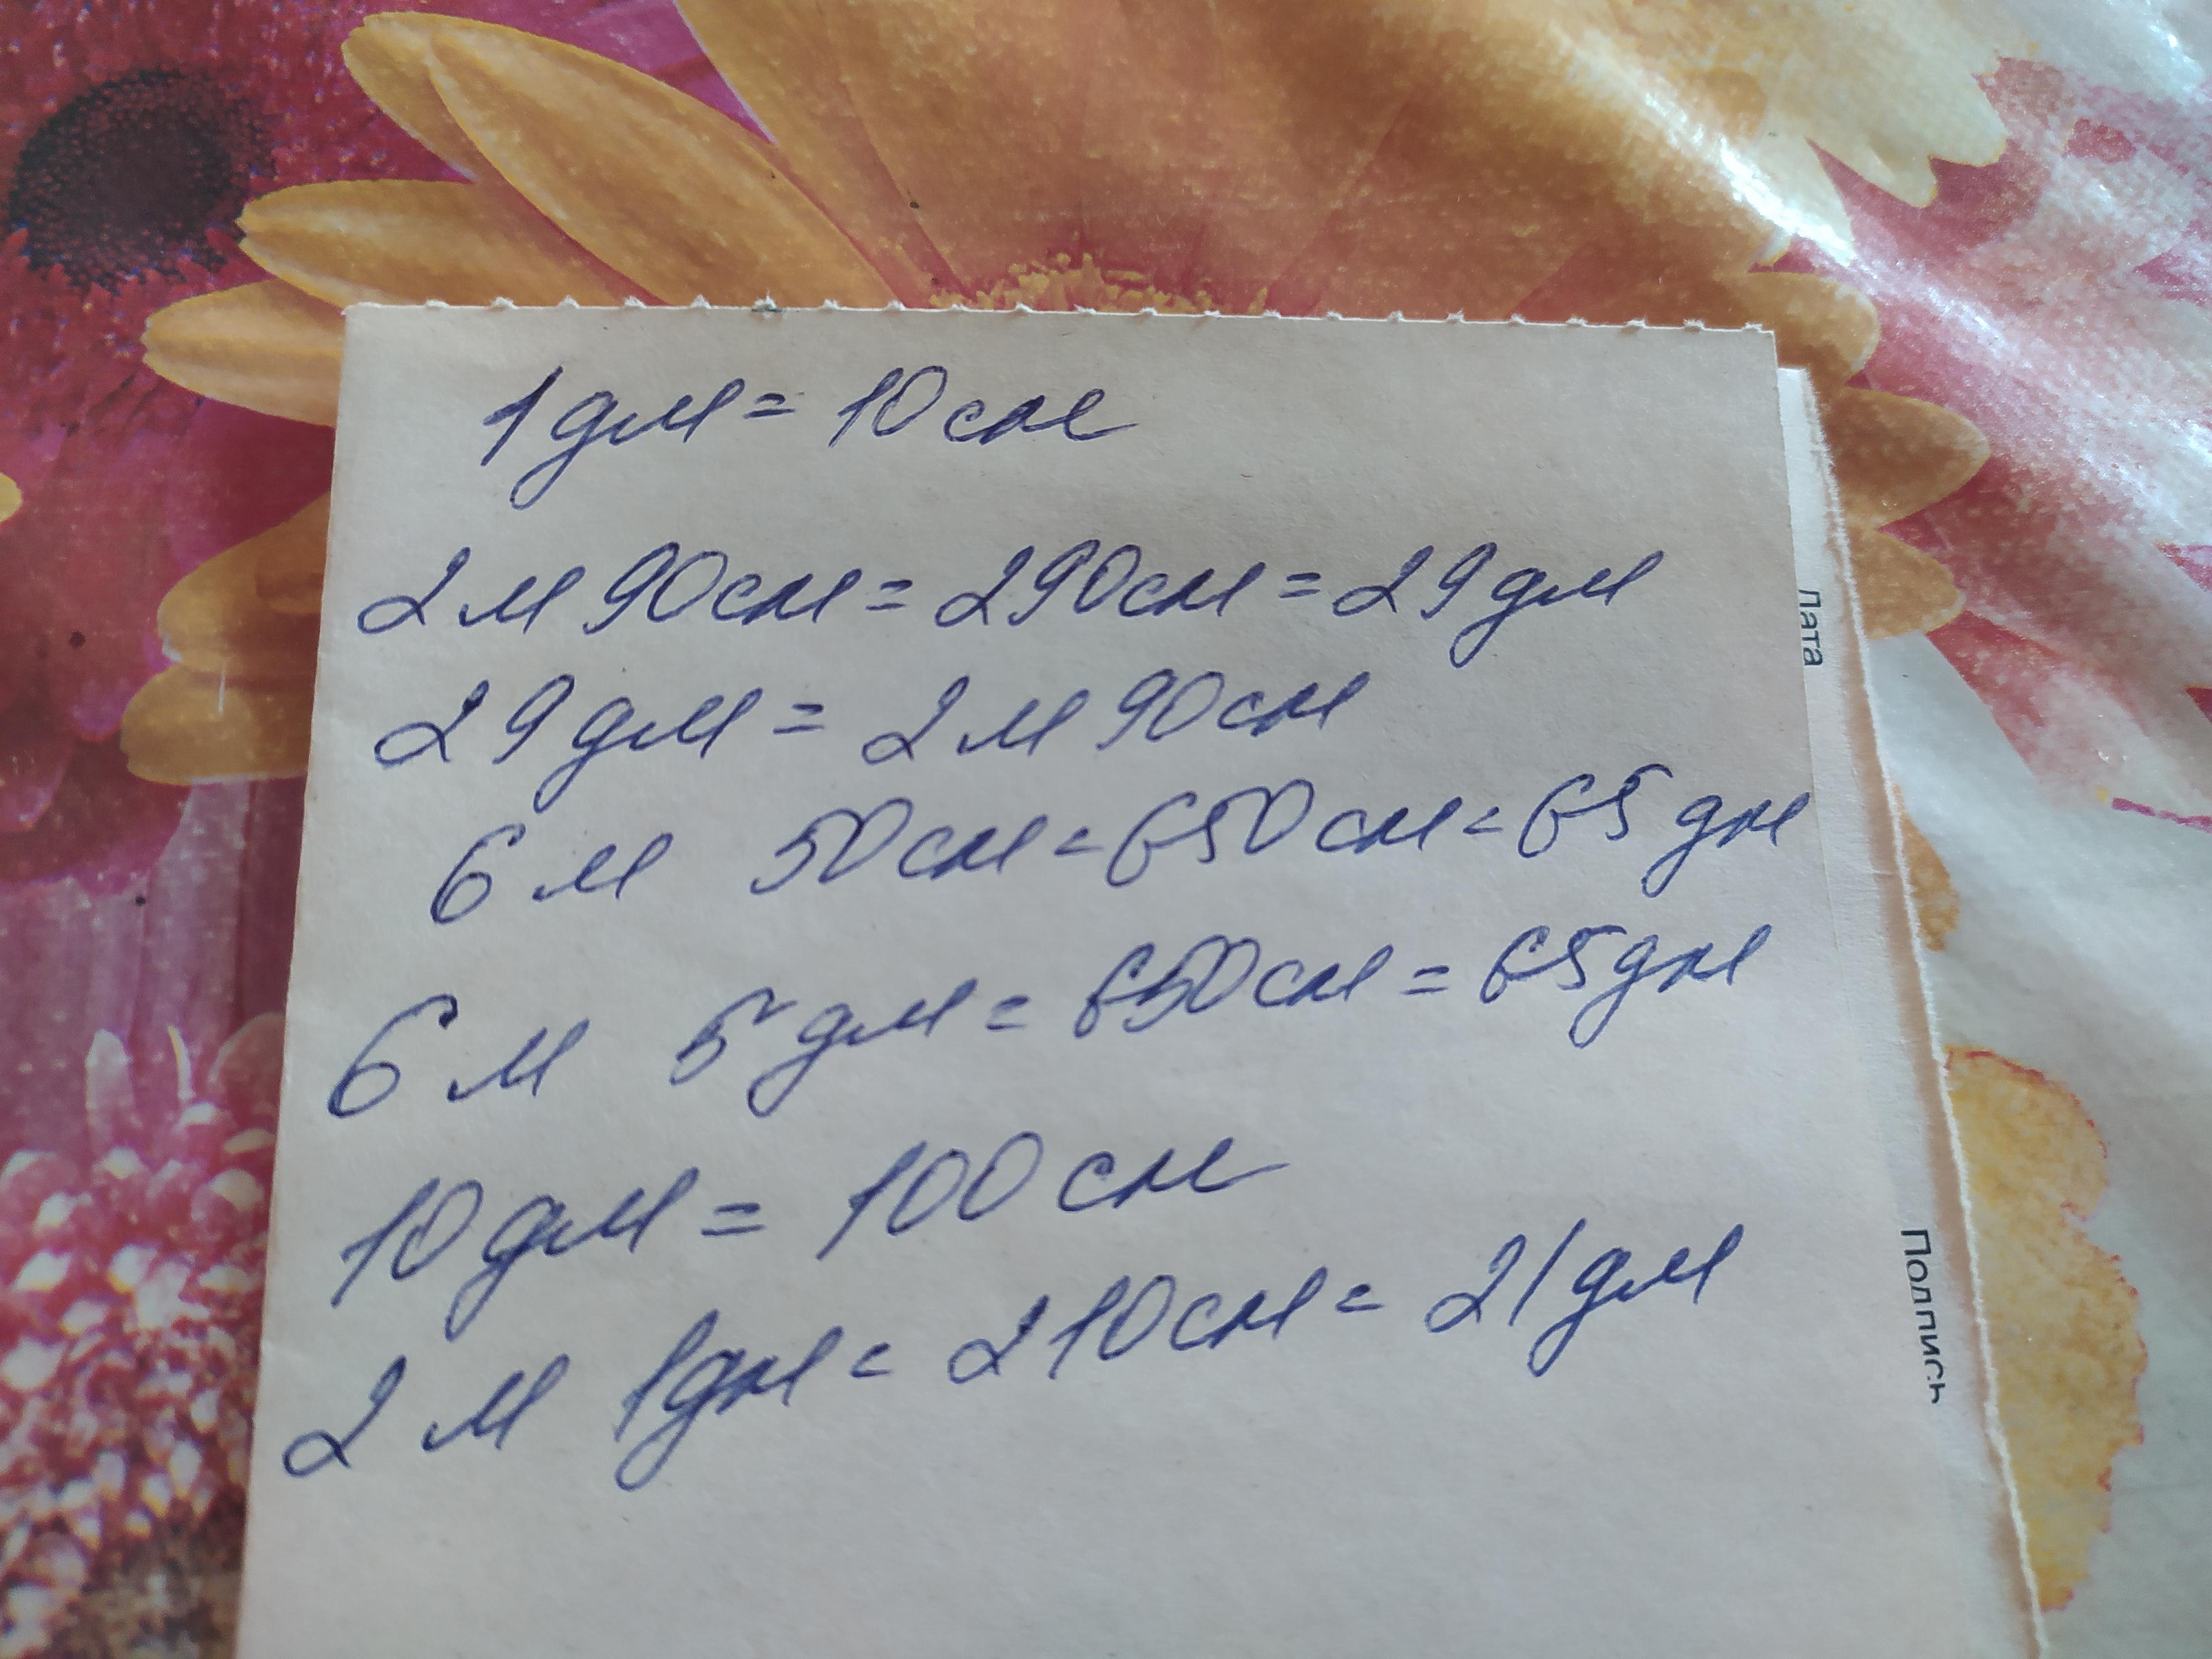 1 дм = 10 см
2 м 90 см = 290 см = 29 дм
29 дм = 2 м 90 см
6 м 50 см = 650 см = 65 дм
6 м 5 дм = 650 см = 65 дм
10 дм = 100 см
2 м 1 дм = 210 см = 21 дм
Дата
Подпись